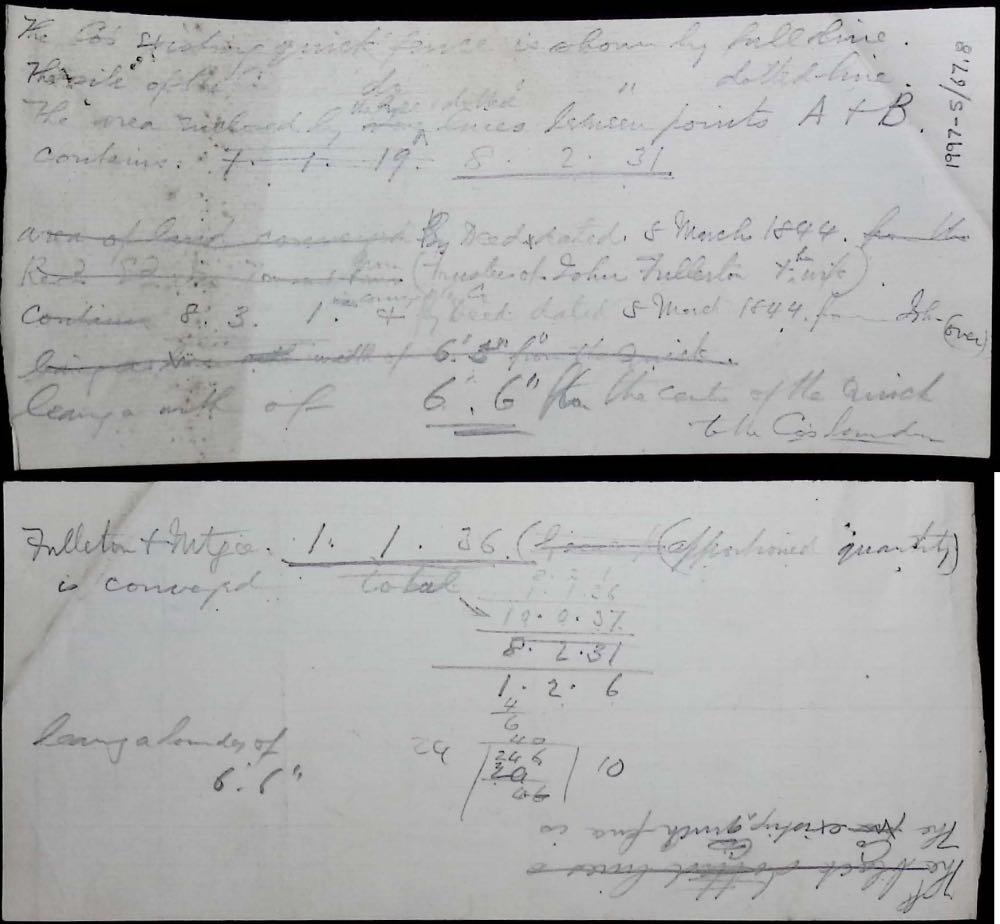 The Co's existing quick fence is shown by full line.
The site of the do " " dotted line.
The area enclosed by the dotted lines between points A + B.
contains. 7. 1. 19. 8. 2. 31
1997-S/67.8
area of land conveyed By Deed dated. 8 March 1844. from the
(Trustees of John Fullerton + wife)
contains 8. 3. 1. + by Deed dated 8 March 1844. from John
(over)
being width of 6'. 3" from the Quick.
leaving a width of 6'. 6" from the centre of the Quick
to the Co's boundary
Fullerton + Mtgee. 1. 1. 36. (apportioned quantity)
is conveyed total
1. 1. 36
10. 0. 37
8. 2. 31
1. 2. 6
4
6
40
24 246 10
leaving a boundary of
6'. 6"
The Co existing quick fence is
The black dotted lines